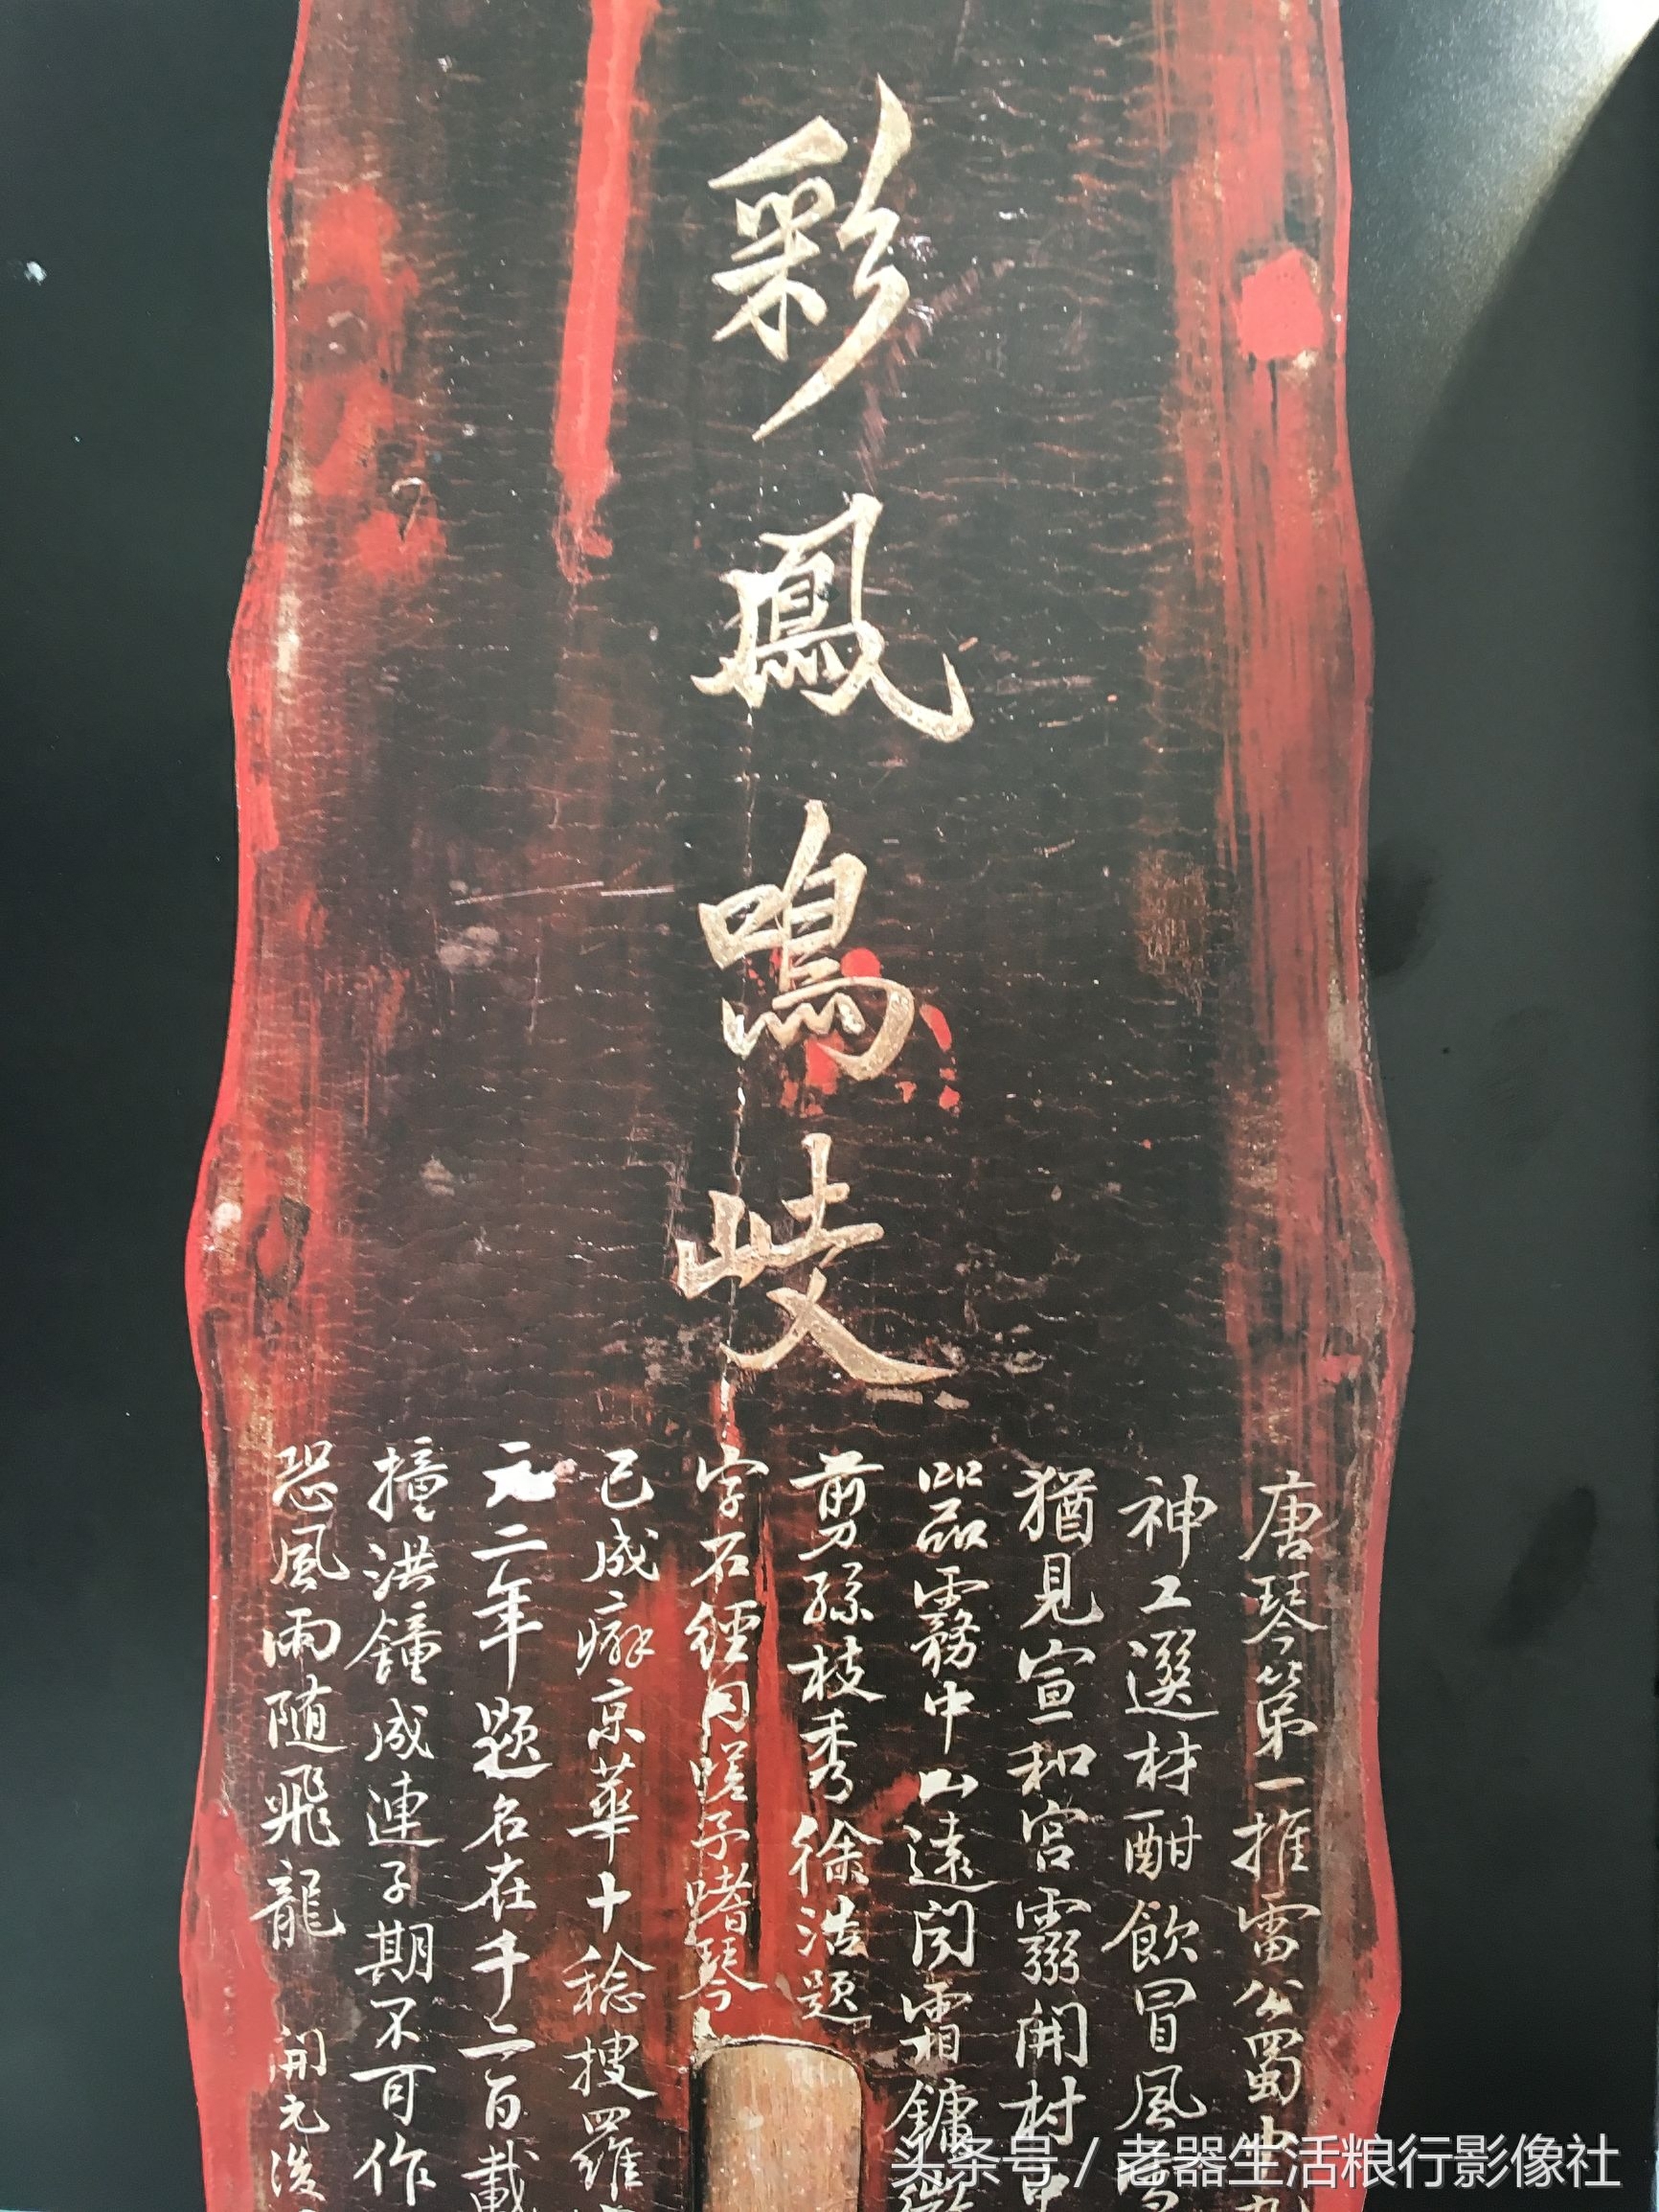 彩鳳鳴岐
唐琴第一推雷公蜀中九
神工選材酣飲冒風
猶見宣和宮霧開村
品霧中山遠聞霜鏞
剪孫枝秀徐浩題
字石經同嗟予嗜琴
已成癖京華十稔搜羅
元二年題名在千二百載
撞洪鐘成連子期不可作
恐風雨隨飛龍 開元後
头条号 / 老器生活粮行影像社